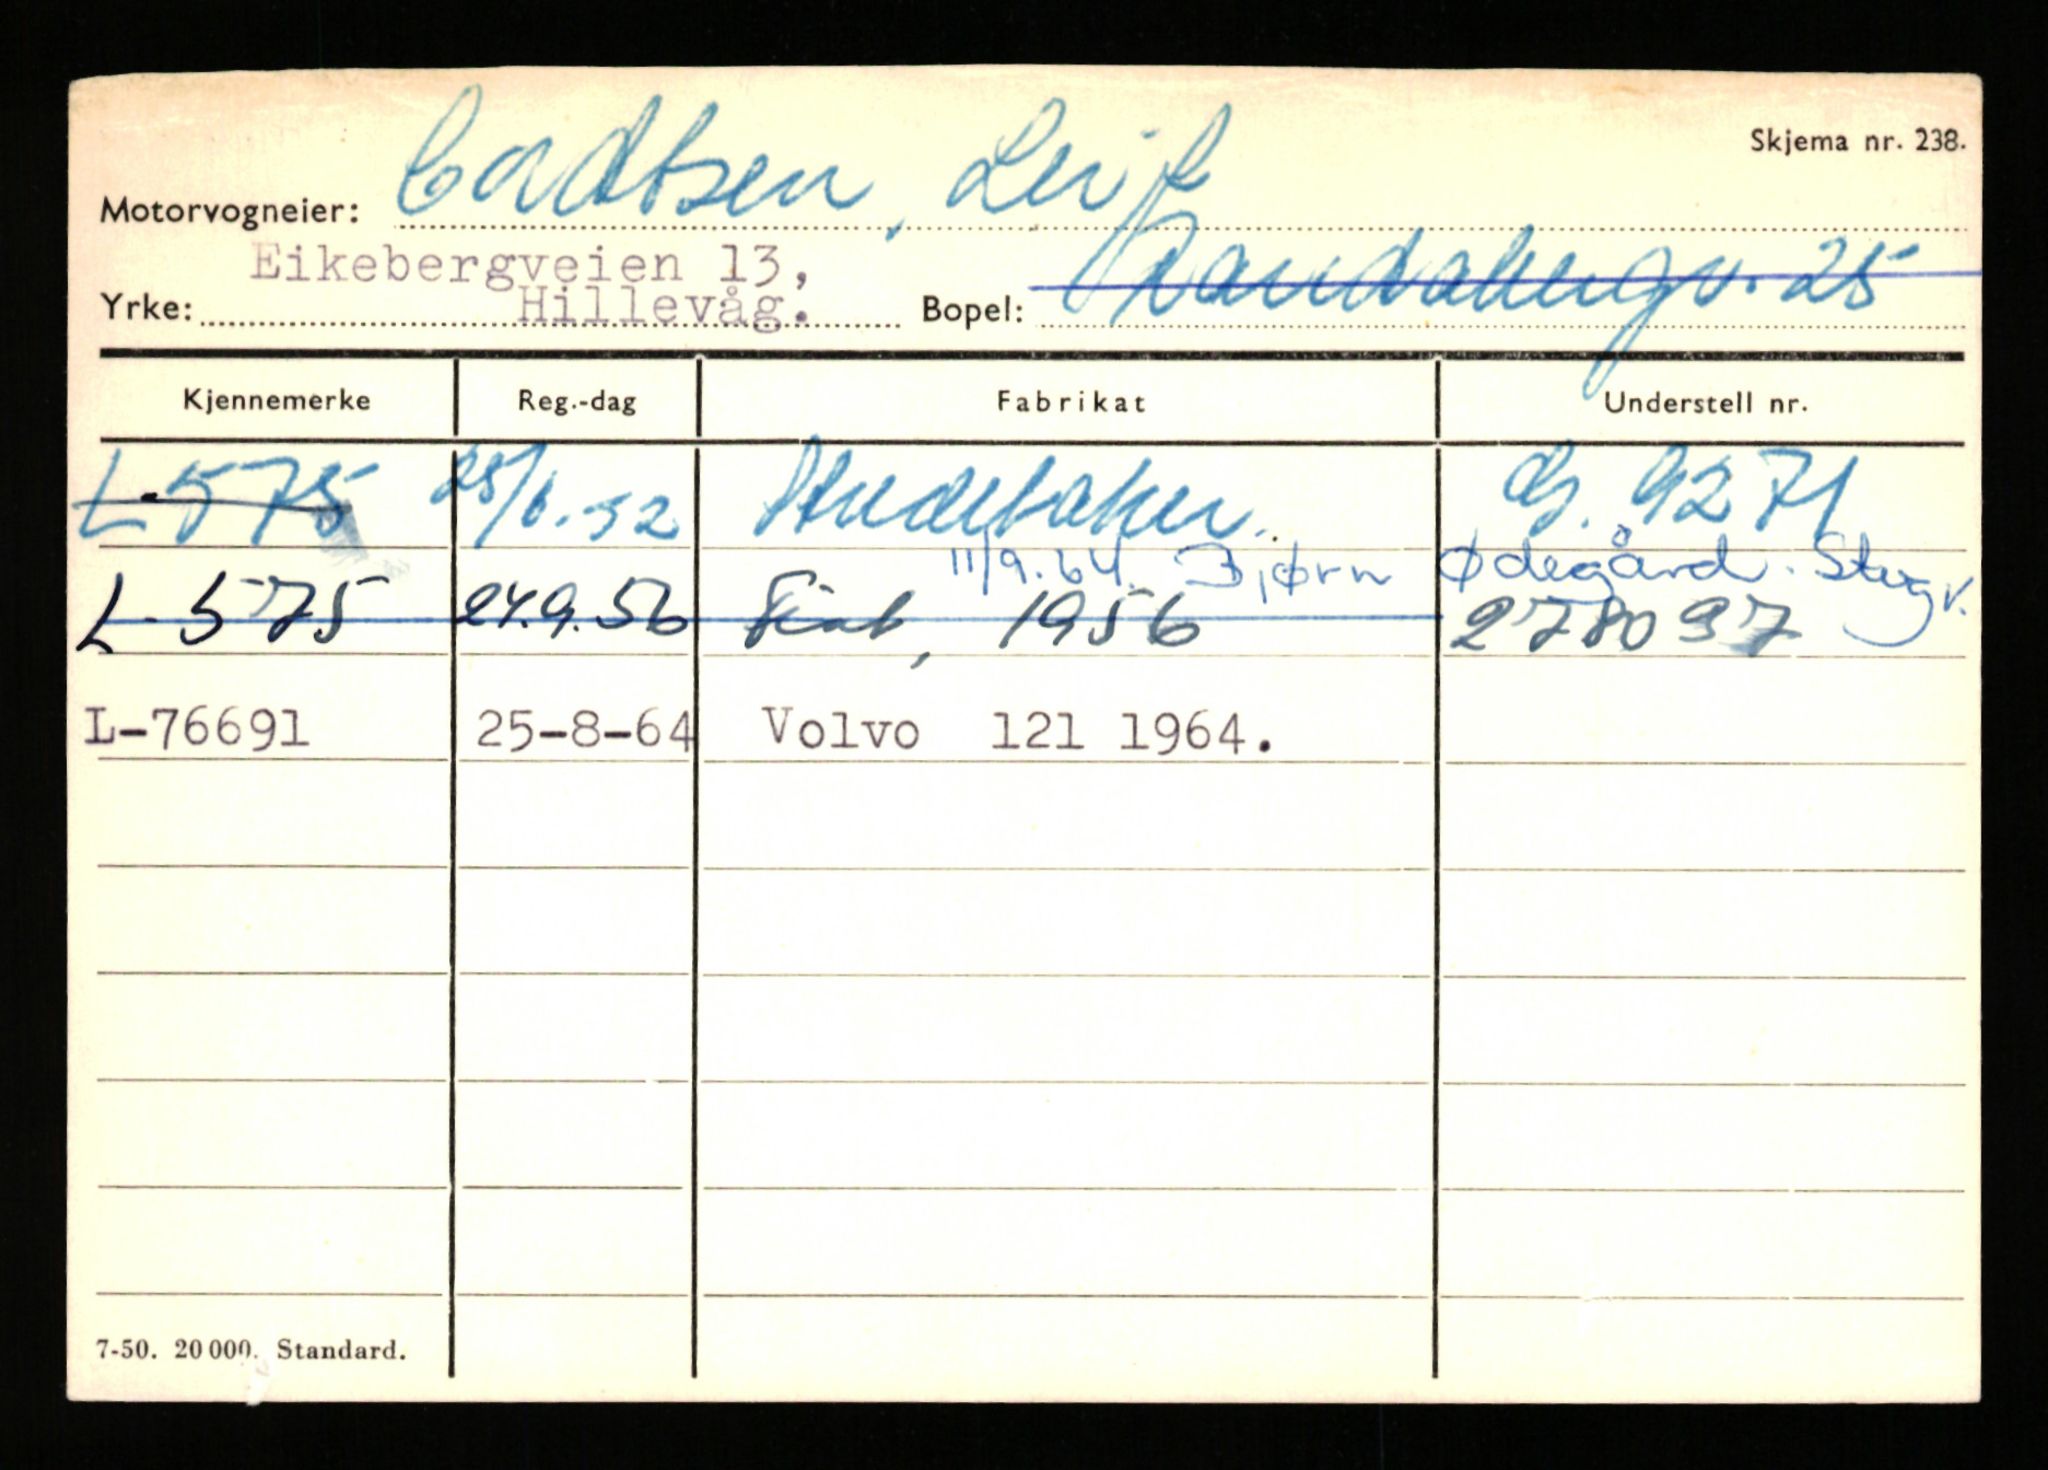 Skjema nr. 238.
Motorvogneier: Cadtsen, Leif
Eikebergveien 13,
Yrke: Hillevåg. Bopel: Randabergv. 25
Kjennemerke Reg.-dag Fabrikat Understell nr.
L-575 25/6.-52 Studebaker. G. 9271
11/9.64. Bjørn Ødegård. Stegv.
L-575 24.9.56 Fiat, 1956 278037
L-76691 25-8-64 Volvo 121 1964.
7-50. 20000. Standard.